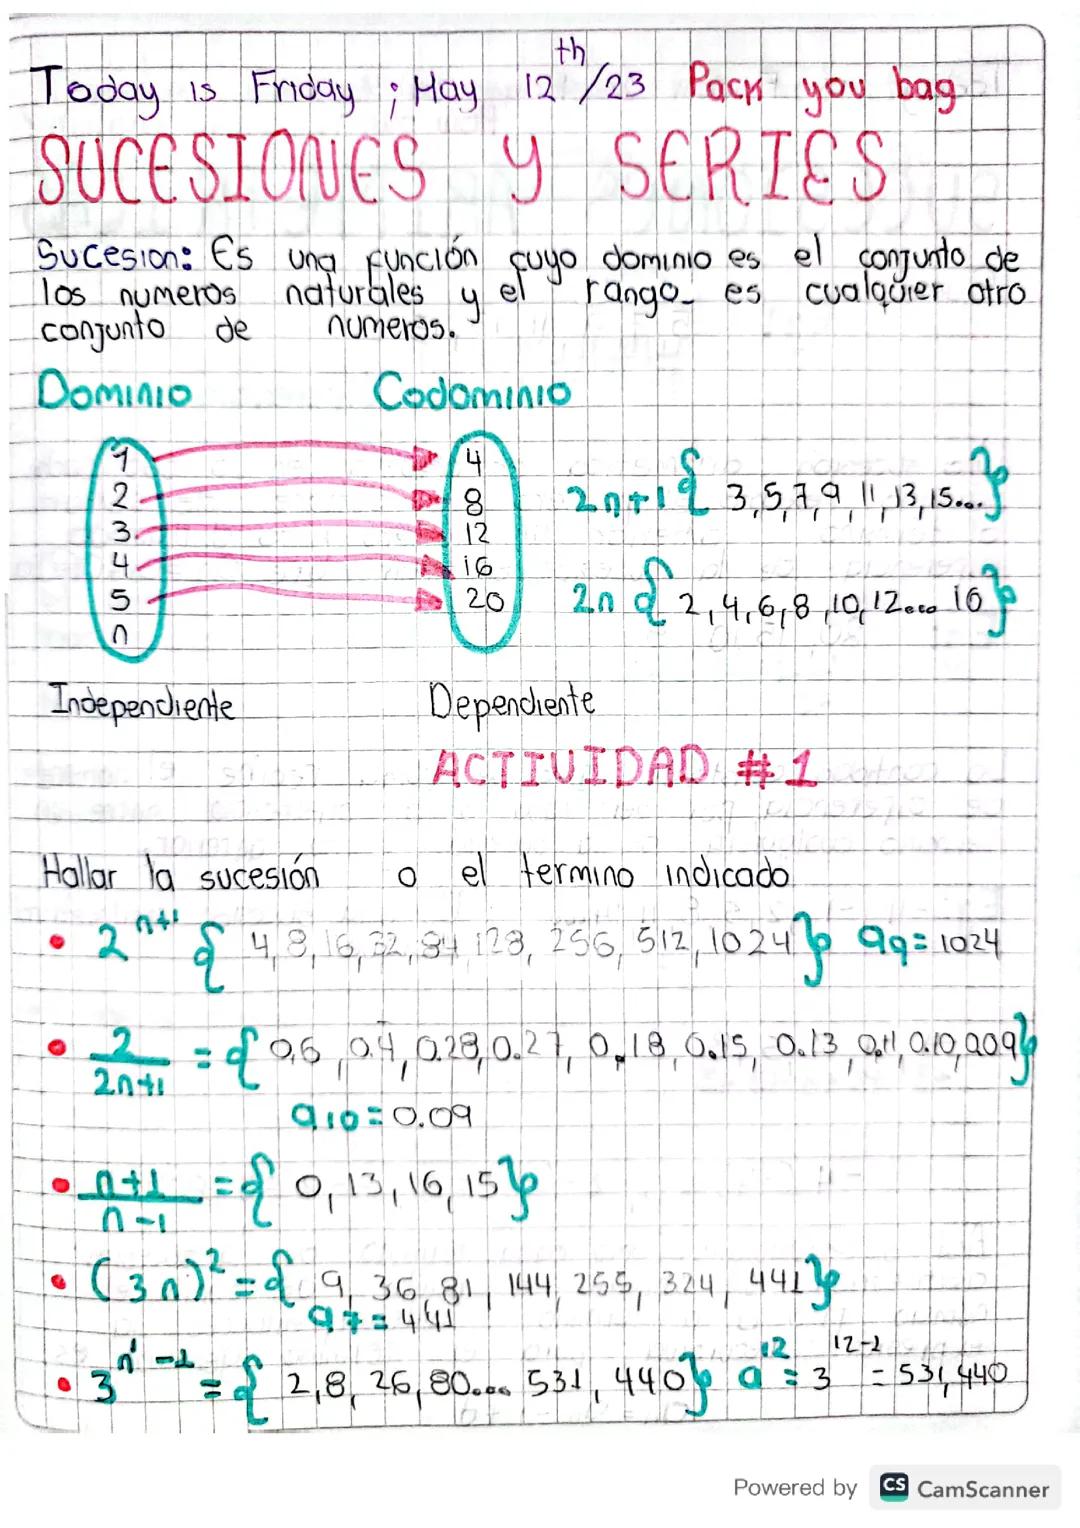 Today is Friday ; May 12th/23 Pack you bag
SUCESIONES y SERIES
Sucesion: Es una función cuyo dominio es el conjunto de
los numeros naturales y el rango es cualquier otro
conjunto de numeros.
Dominio Codominio
1 4
2 8
3 12
4 16
5 20
n
2n+1 { 3,5,7,9,11,13,15...}
2n { 2,4,6,8,10,12.... 16}
Independiente Dependiente
ACTIVIDAD #1
Hallar la sucesión o el termino indicado
• 2^(n+1) { 4,8,16,32,84,128,256,512,1024} a9=1024
• 2/(2n+1) = { 0.6,0.4,0.28,0.27,0.18,0.15,0.13,0.11,0.10,0.09}
a10=0.09
• (n+1)/(n-1) = { 0,13,16,15}
• (3n)² = { 9, 36, 81, 144, 255, 324, 441}
a7=441
• 3^n -1 = { 2,8,26,80.... 531,440} a12 = 3^(12-1) = 531,440
Powered by CS CamScanner